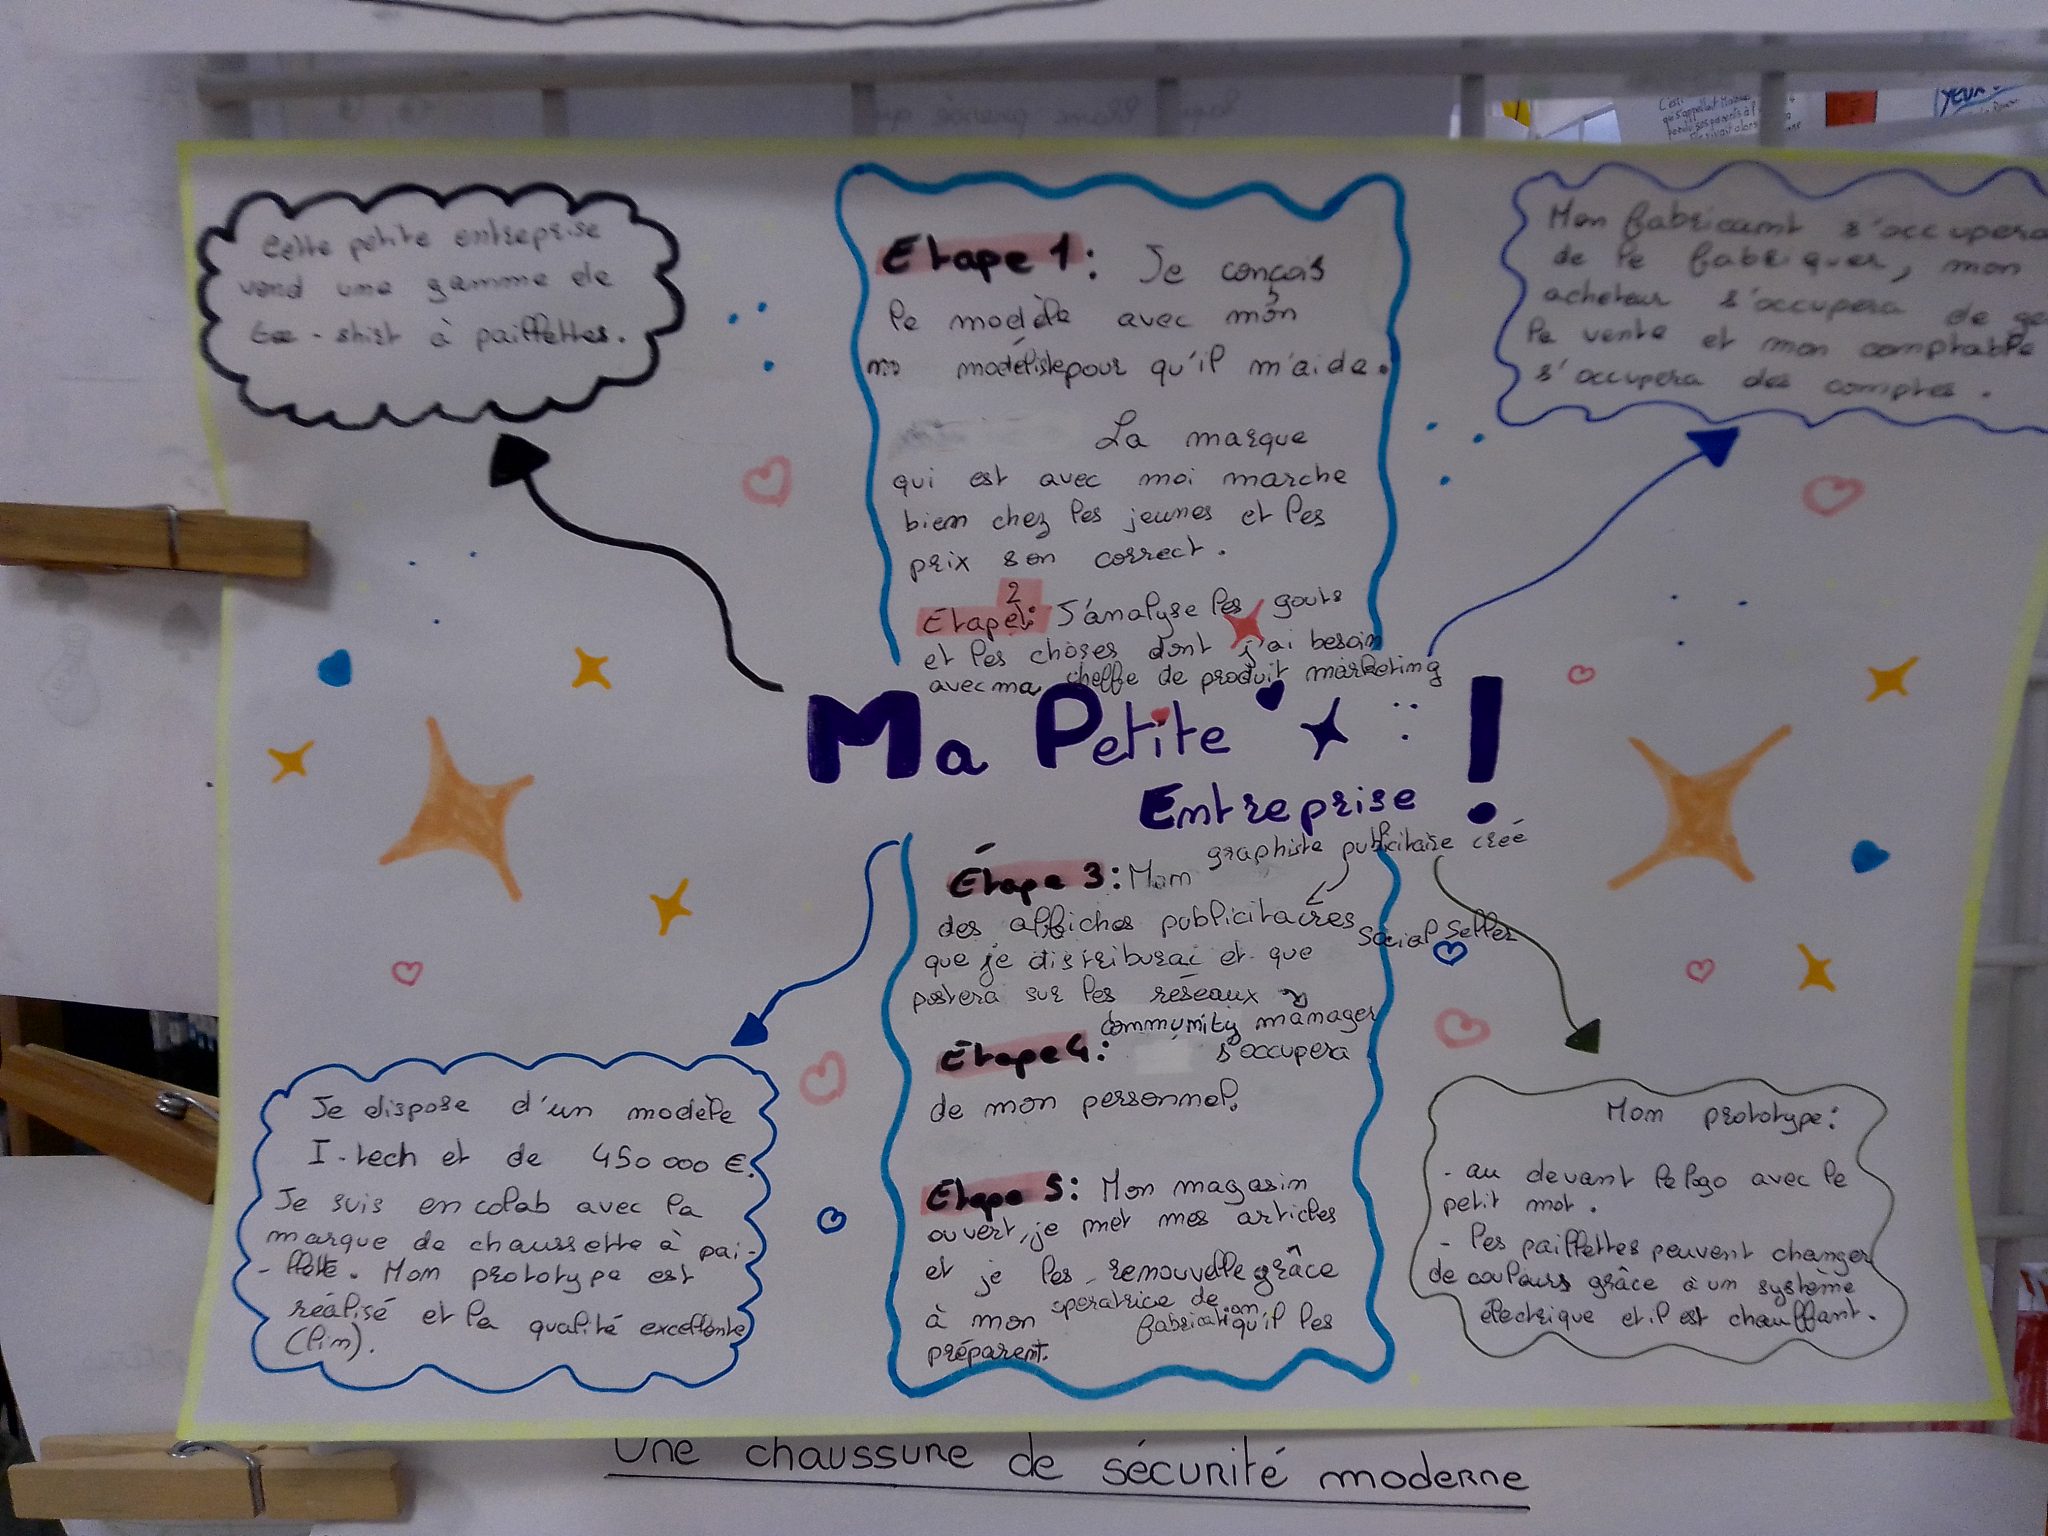 Cette petite entreprise
vend une gamme de
tee-shirt à paillettes.
Etape 1: Je conçois
le modèle avec mon
modéliste pour qu'il m'aide.
La marque
qui est avec moi marche
bien chez les jeunes et les
prix son correct.
Etape 2: J'analyse les gouts
et les choses dont j'ai besoin
avec ma cheffe de produit marketing
Mon fabricant s'occupera
de le fabriquer, mon
acheteur s'occupera de
le vente et mon comptable
s'occupera des comptes.
Ma Petite
Entreprise !
Étape 3: Mon graphiste publicitaire creé
des affiches publicitaires
que je distriburai et que Social Seller
postera sur les réseaux
Etape 4: Community manager
s'occupera
de mon personnel.
Etape 5: Mon magasin
ouvert, je met mes articles
et je les renouvelle grâce
à mon operatrice de
fabrication qu'il les
préparent.
Je dispose d'un modèle
I-tech et de 450 000 €.
Je suis en colab avec la
marque de chaussette à pai-
-llete. Mom prototype est
réalisé et la qualité excellente
(lin).
Mom prototype:
- au devant le logo avec le
petit mot.
- les paillettes peuvent changer
de couleurs grâce à un système
électrique et il est chauffant.
Une chaussure de sécurité moderne